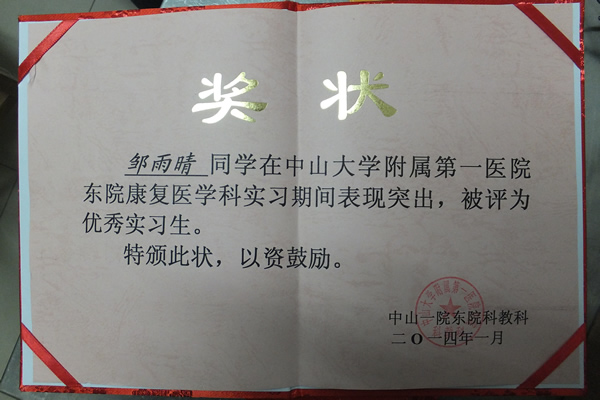 奖状
邹雨晴 同学在中山大学附属第一医院
东院康复医学科实习期间表现突出，被评为
优秀实习生。
特颁此状，以资鼓励。
中山一院东院科教科
二〇一四年一月